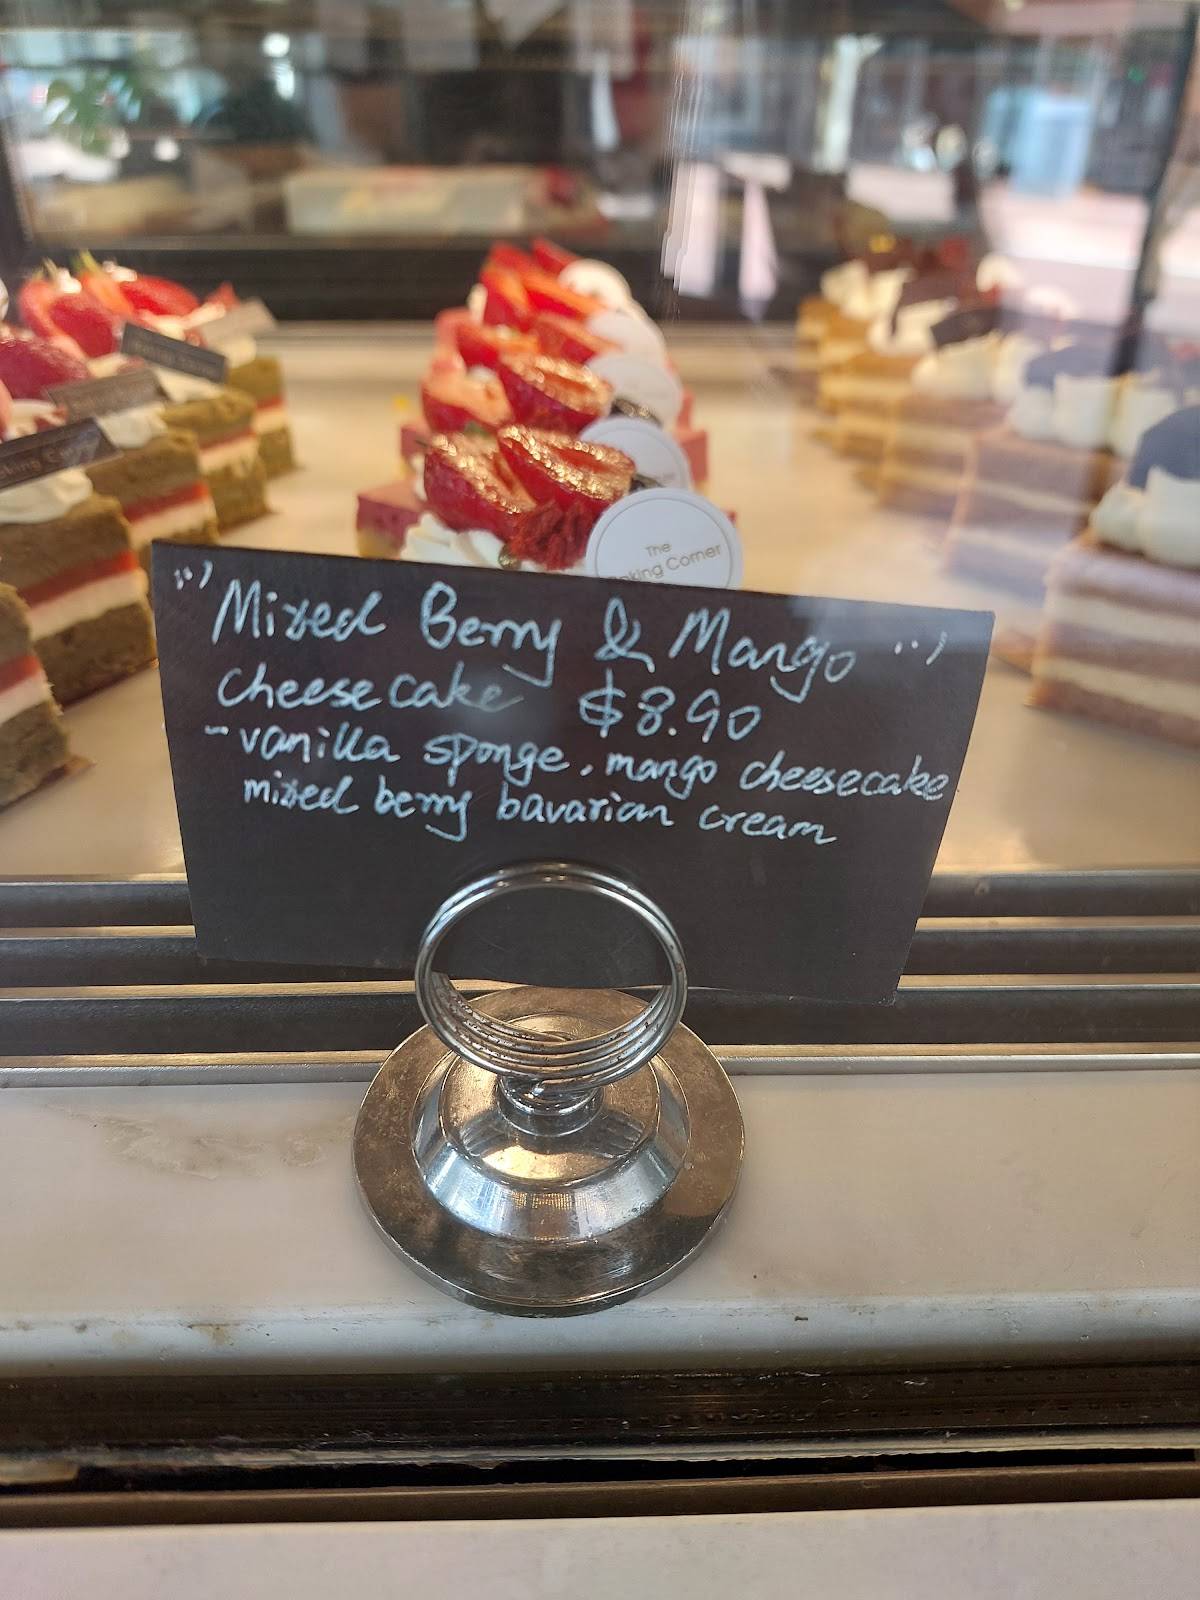 The
Baking Corner
"Mixed Berry & Mango"
cheesecake $8.90
-vanilla sponge, mango cheesecake
mixed berry bavarian cream